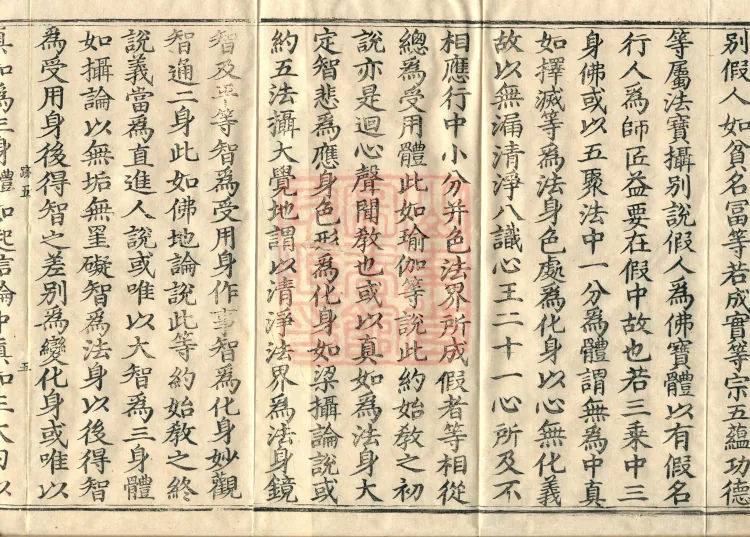 別假人如貧名冨等若成實等宗五蘊功德
等屬法寶攝別說假人為佛寶體以有假名
行人為師匠益要在假中故也若三乗中三
身佛或以五聚法中一分為體謂無為中真
如擇滅等為法身色處為化身以心無化義
故以無漏清淨八識心王二十一心所及不
相應行中小分并色法界所成假者等相從
總為受用體此如瑜伽等說此約始教之初
說亦是迴心聲聞教也或以真如為法身大
定智悲為應身色形為化身如梁攝論說或
約五法攝大覺地謂以清淨法界為法身鏡
智及平等智為受用身作事智為化身妙觀
智通二身此如佛地論說此等約始教之終
說義當為直進人說或唯以大智為三身體
如攝論以無垢無罣礙智為法身以後得智
為受用身後得智之差別為變化身或唯以
跡五
五
真如為三身體如起信論中真如三大內以